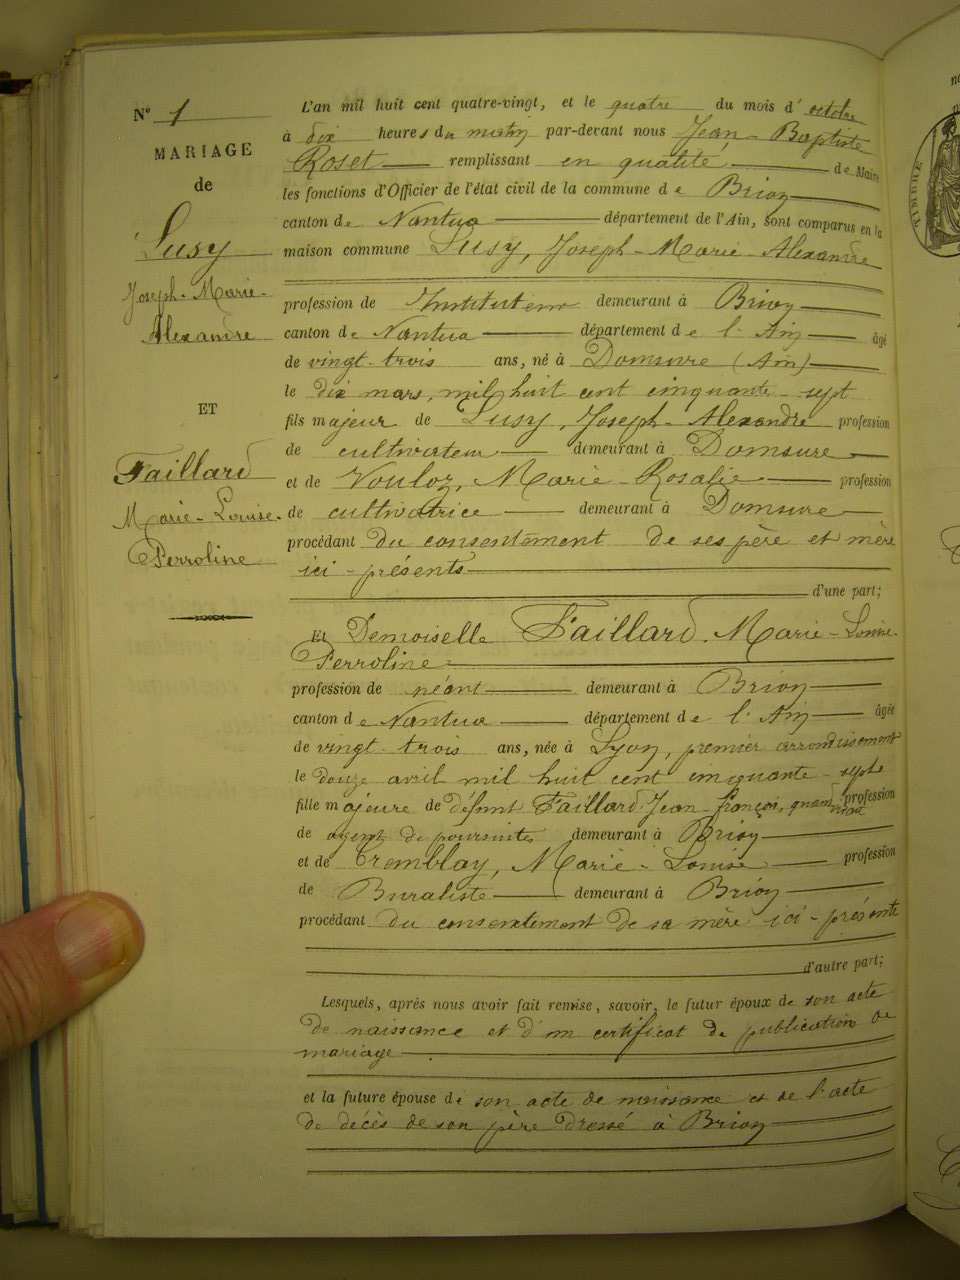 N° 1
MARIAGE
de
Lusy
Joseph-Marie-
Alexandre
ET
Faillard
Marie-Louise-
Perroline
L'an mil huit cent quatre-vingt, et le quatre du mois d'octobre
à dix heures du matin par-devant nous Jean-Baptiste
Roset remplissant en qualité de Maire
les fonctions d'Officier de l'état civil de la commune de Brion
canton de Nantua département de l'Ain, sont comparus en la
maison commune Lusy, Joseph-Marie-Alexandre
profession de Instituteur demeurant à Brion
canton de Nantua département de l'Ain âgé
de vingt-trois ans, né à Domsure (Ain)
le dix mars, mil huit cent cinquante-sept
fils majeur de Lusy, Joseph-Alexandre profession
de cultivateur demeurant à Domsure
et de Vouloz, Marie-Rosalie profession
de cultivatrice demeurant à Domsure
procédant du consentement de ses père et mère
ici-présents
d'une part;
Et Demoiselle Faillard, Marie-Louise-
Perroline
profession de néant demeurant à Brion
canton de Nantua département de l'Ain âgée
de vingt-trois ans, née à Lyon, premier arrondissement
le douze avril mil huit cent cinquante-sept
fille majeure de défunt Faillard Jean-françois, quand vivait profession
de agent de poursuites demeurant à Brion
et de Tremblay, Marie-Louise profession
de Buraliste demeurant à Brion
procédant du consentement de sa mère ici-présente
d'autre part;
Lesquels, après nous avoir fait remise, savoir, le futur époux de son acte
de naissance et d'un certificat de publication de
mariage
et la future épouse de son acte de naissance et de l'acte
de décès de son père dressé à Brion
TIMBRE